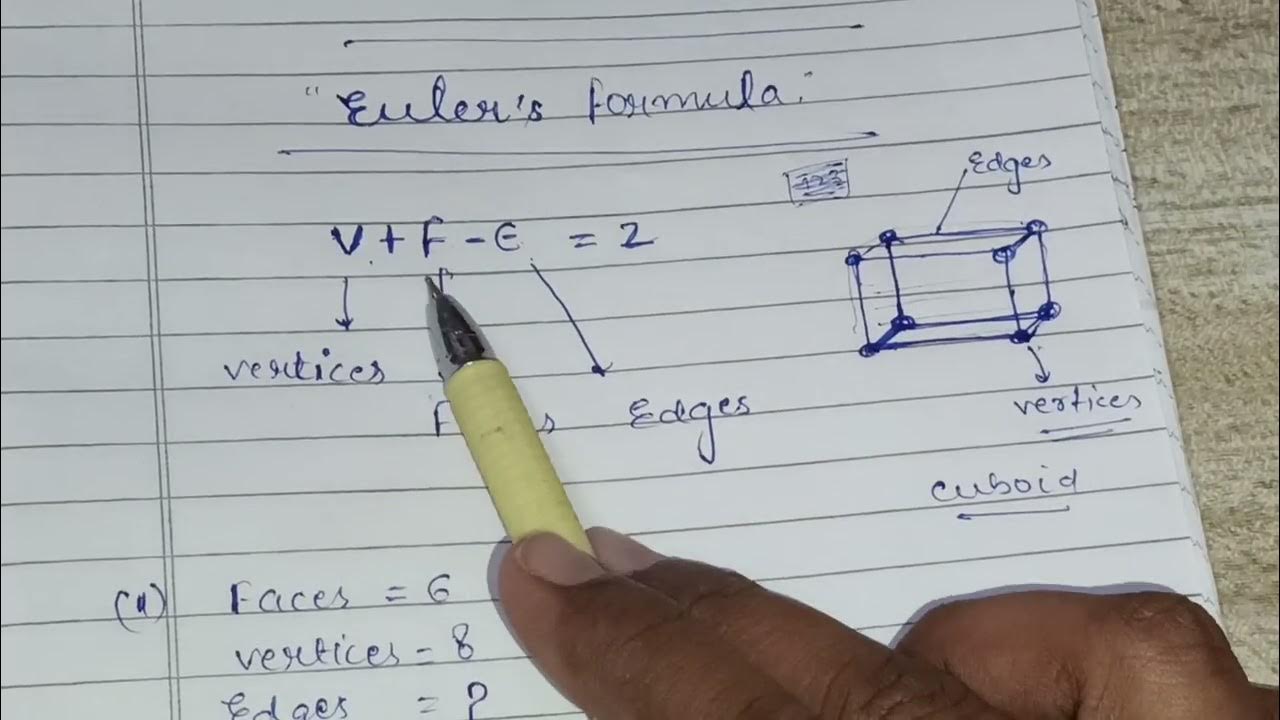 "Euler's formula."
Edges
V + F - E = 2
vertices
Edges
vertices
cuboid
(a) Faces = 6
vertices = 8
Edges = ?